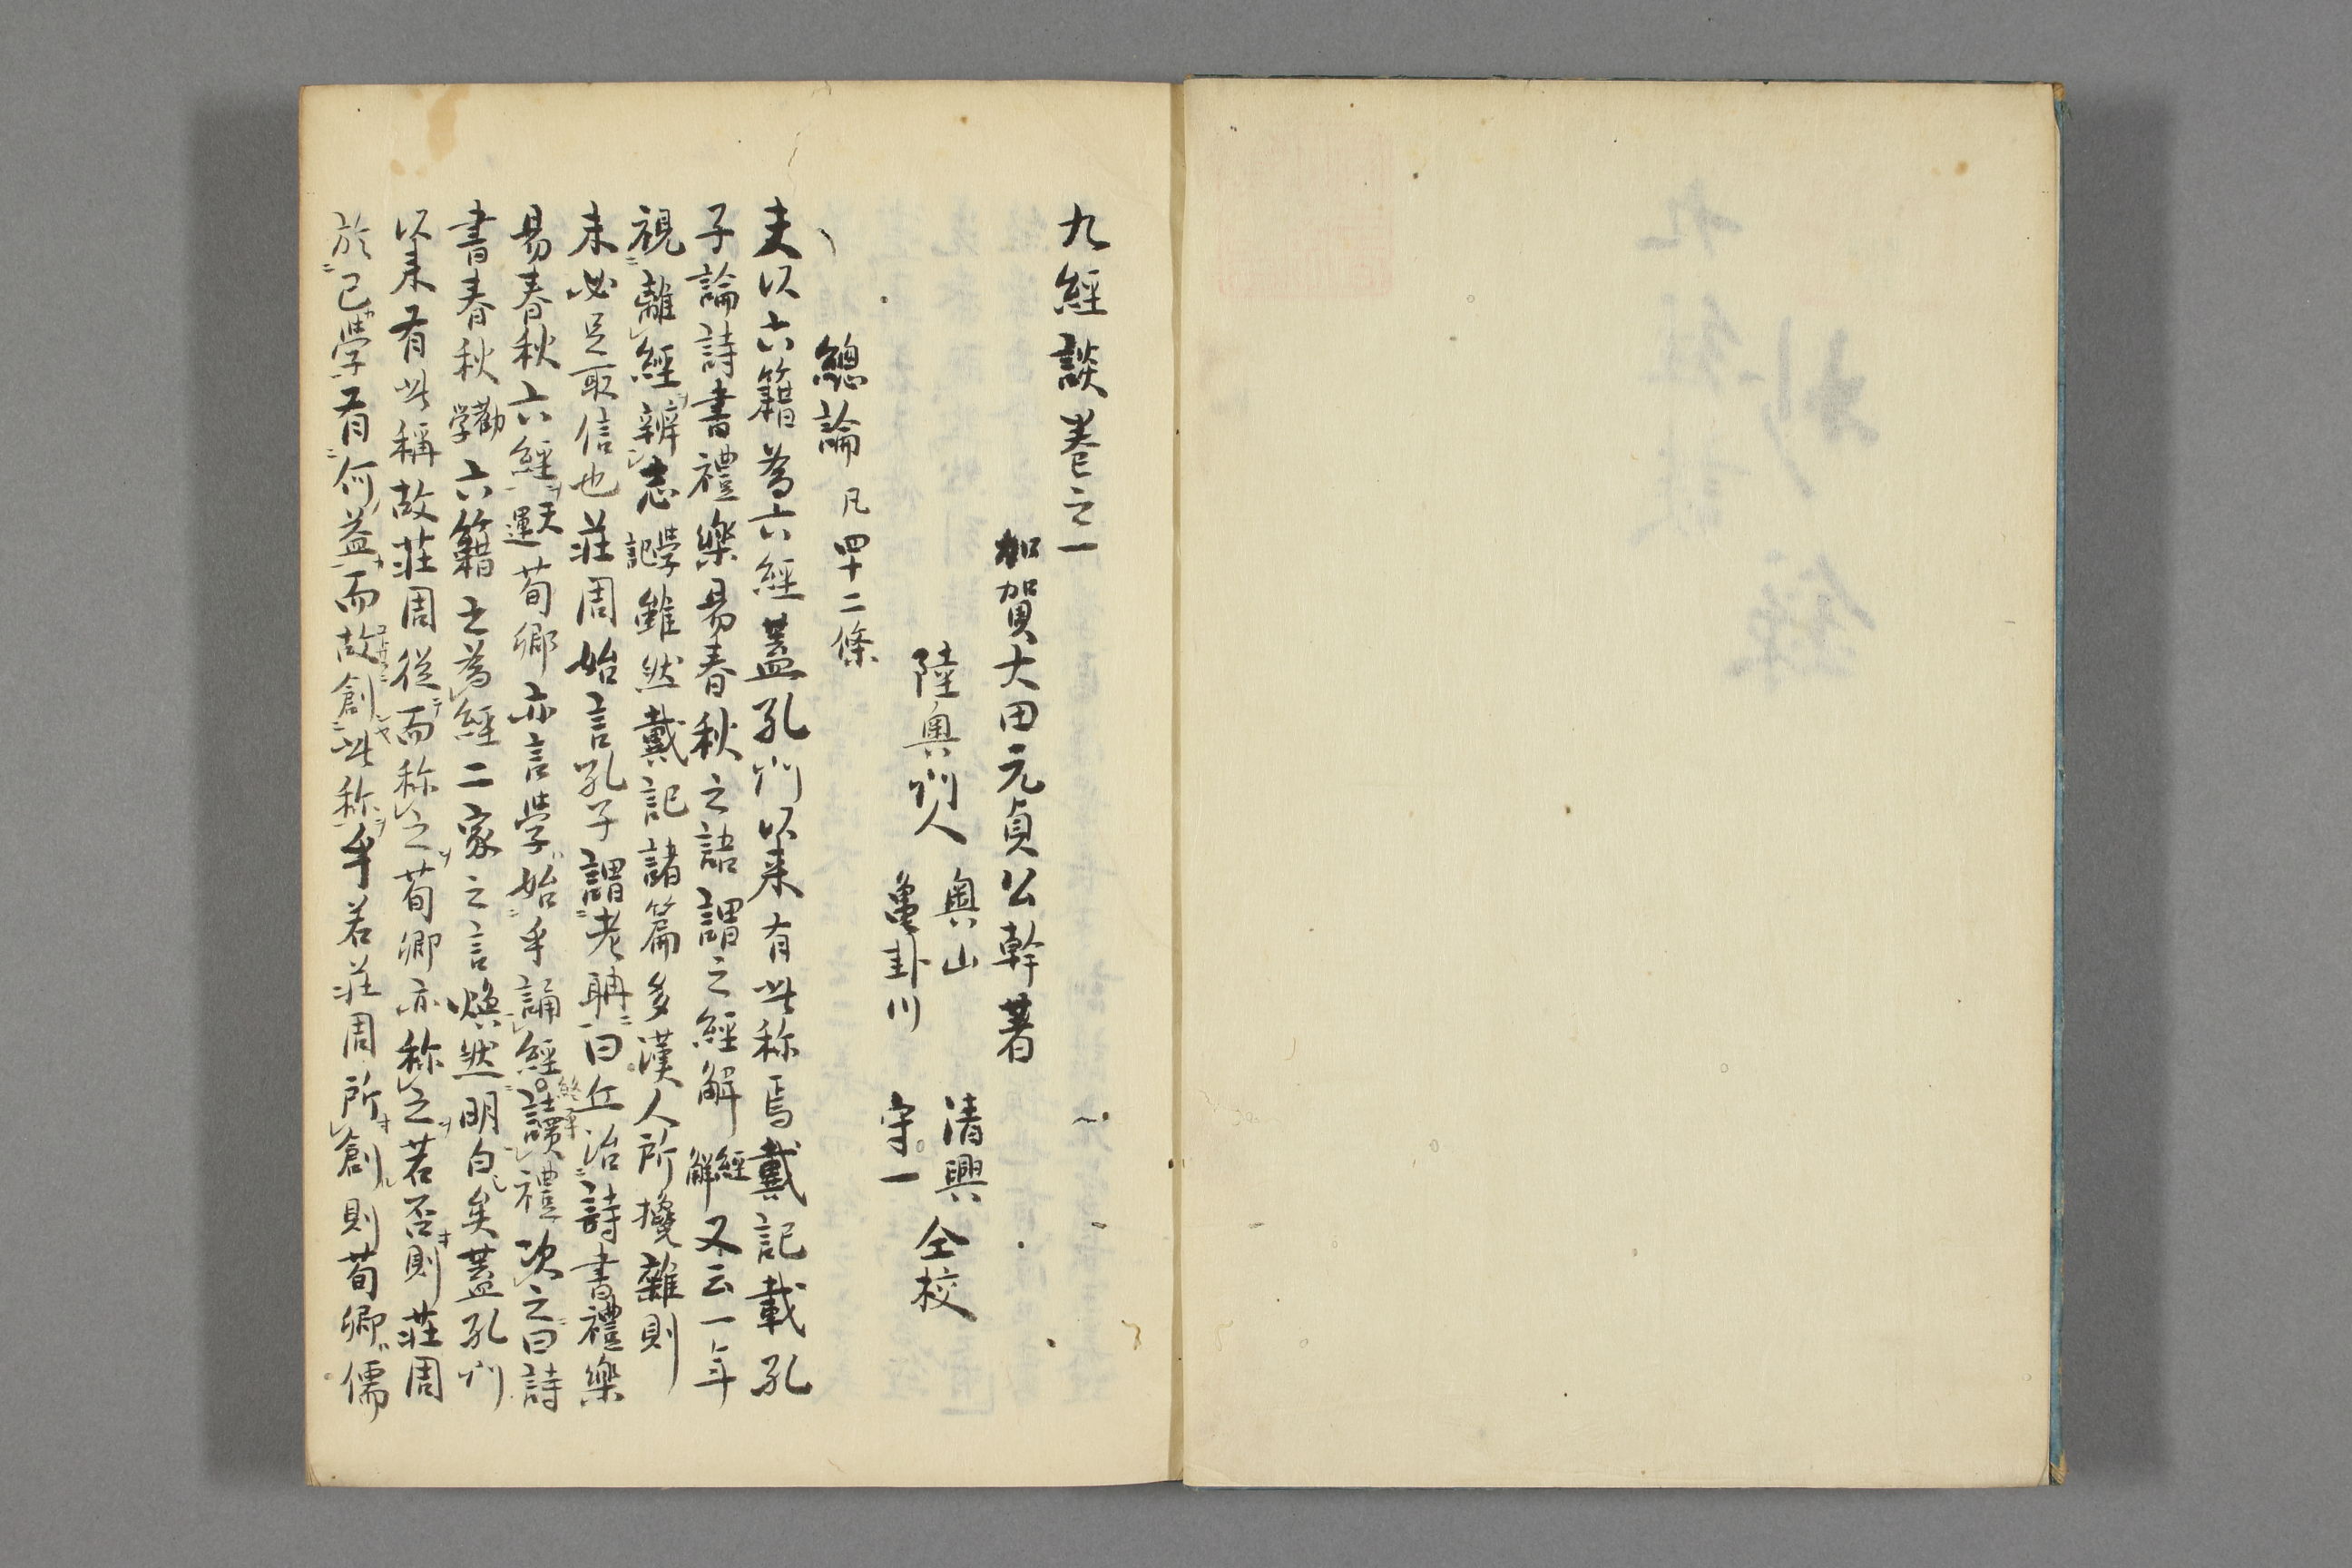 九經談巻之一
加賀大田元貞公幹著
陸奧州人 奧山 清興 仝校
亀卦川 守一
總論 凡四十二條
夫以六籍為六經蓋孔門以来有此称焉戴記載孔
子論詩書禮樂易春秋之語謂之經解 經解 又云一年
視離經辨志 學記 雖然戴記諸篇多漢人所攙雜則
未必足取信也荘周始言孔子謂老聃曰丘治詩書禮樂
易春秋六經 天運 荀卿亦言學始乎誦經終乎讀禮次之曰詩
書春秋 勸学 六籍之為經二家之言煥然明白矣蓋孔門
以来有此稱故荘周從而称之荀卿亦称之若否則荘周
於己學有何益而故創此称乎若荘周所創則荀卿儒